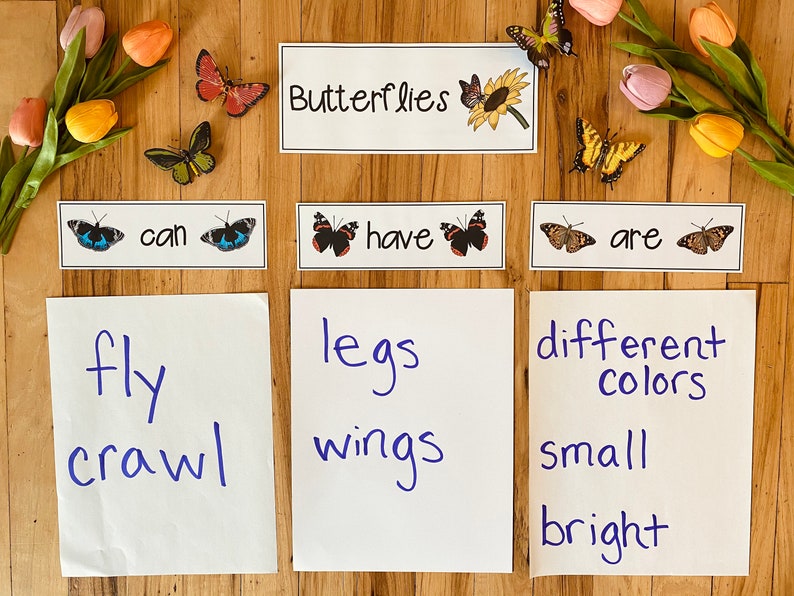 Butterflies
can
have
are
fly
crawl
legs
wings
different
colors
small
bright